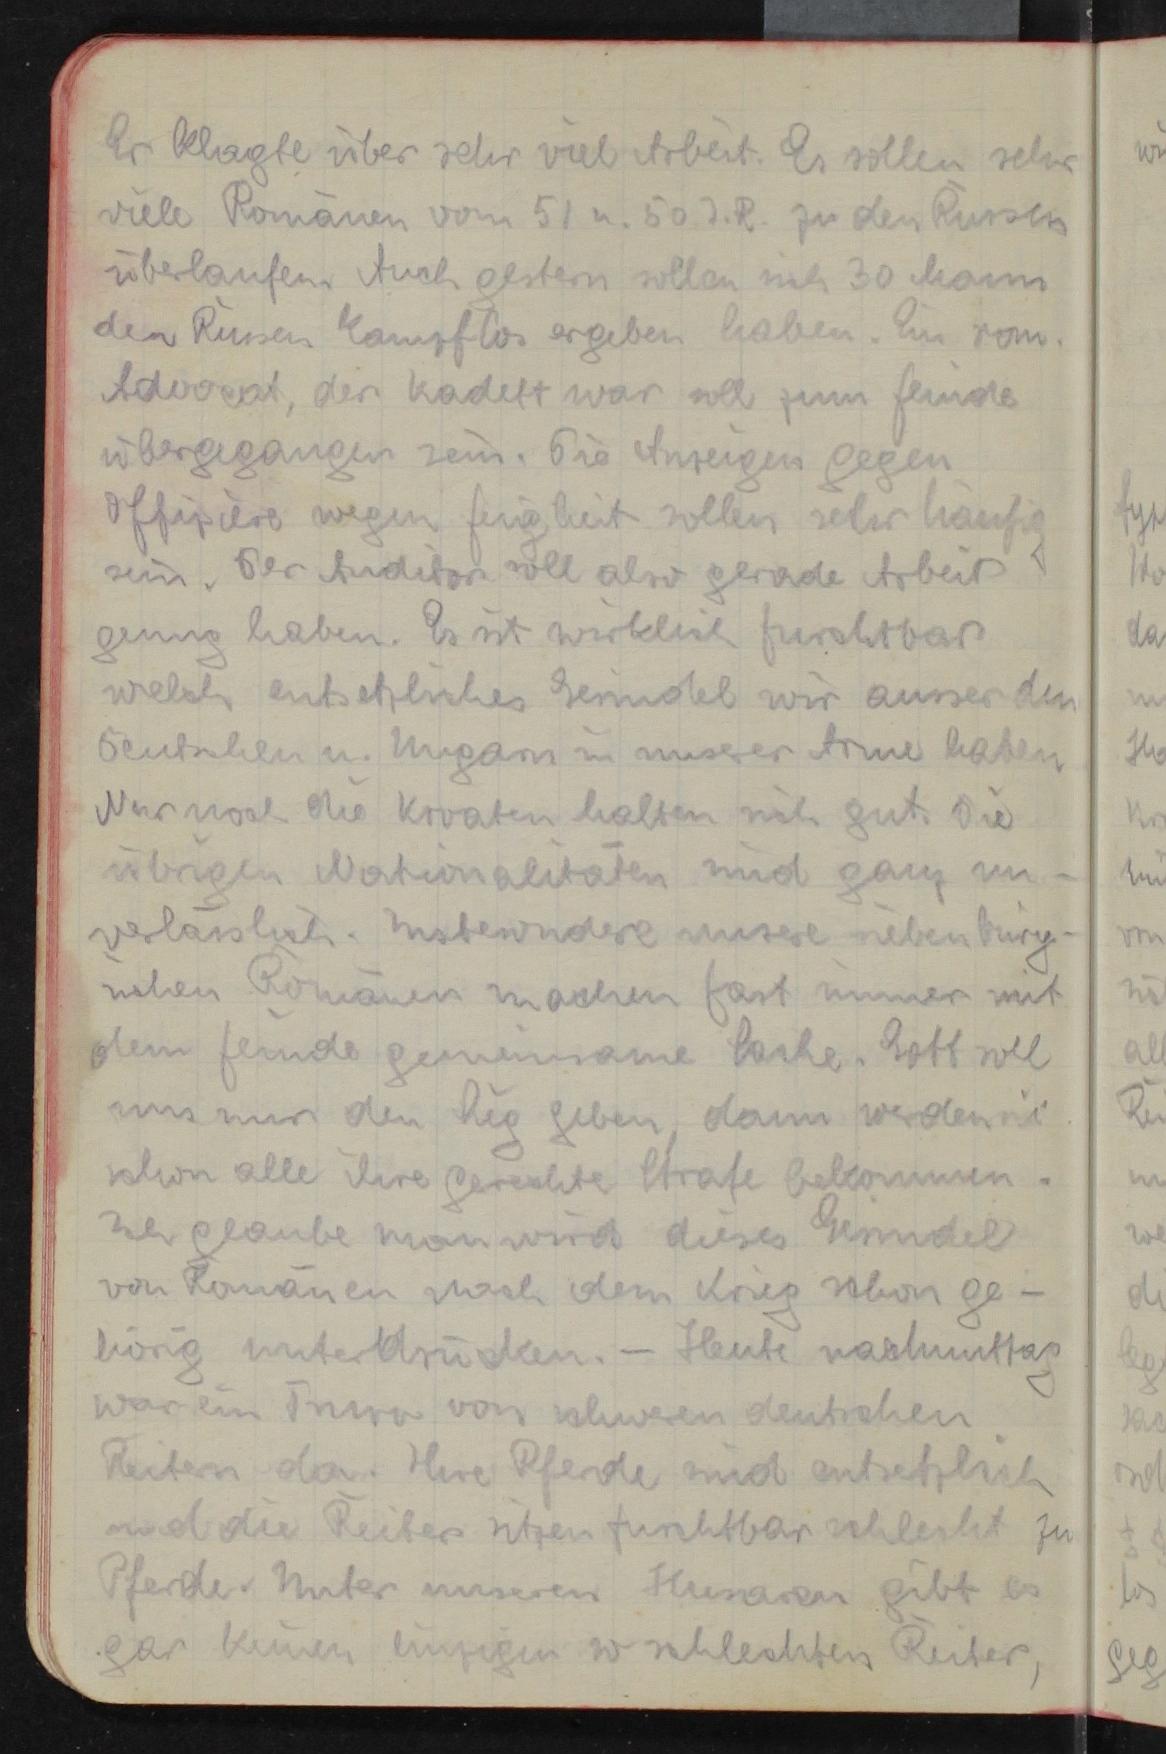 Er klagte über sehr viel Arbeit. Es sollen sehr
viele Romänen vom 51 u. 50 I.R. zu den Russen
überlaufen. Auch gestern sollen sich 30 Mann
den Russen kampflos ergeben haben. Ein rom.
Advocat, der Kadett war soll zum Feinde
übergegangen sein. Die Anzeigen gegen
Offiziere wegen Feigheit sollen sehr häufig
sein. Der Auditor soll also gerade Arbeit
genug haben. Es ist wirklich furchtbar
welch entsetzliches Gesindel wir ausser den
Deutschen u. Ungarn in unserer Arme haben
Nur noch die Kroaten halten sich gut. Die
übrigen Nationalitäten sind ganz un-
verlässlich. Insbesondere unsere siebenbürg-
ischen Romänen machen fast immer mit
dem Feinde gemeinsame Sache. Gott soll
uns nur den Sieg geben, dann werden
schon alle ihre gerechte Strafe bekommen.
Ich glaube man wird dieses Gesindel
von Romänen nach dem Krieg schon ge-
hörig unterdrücken. - Heute nachmittag
war ein von schweren deutschen
Reitern da. Ihre Pferde sind entsetzlich
und die Reiter sitzen furchtbar schlecht zu
Pferde. Unter unseren Husaren gibt es
gar keinen einzigen so schlechten Reiter,